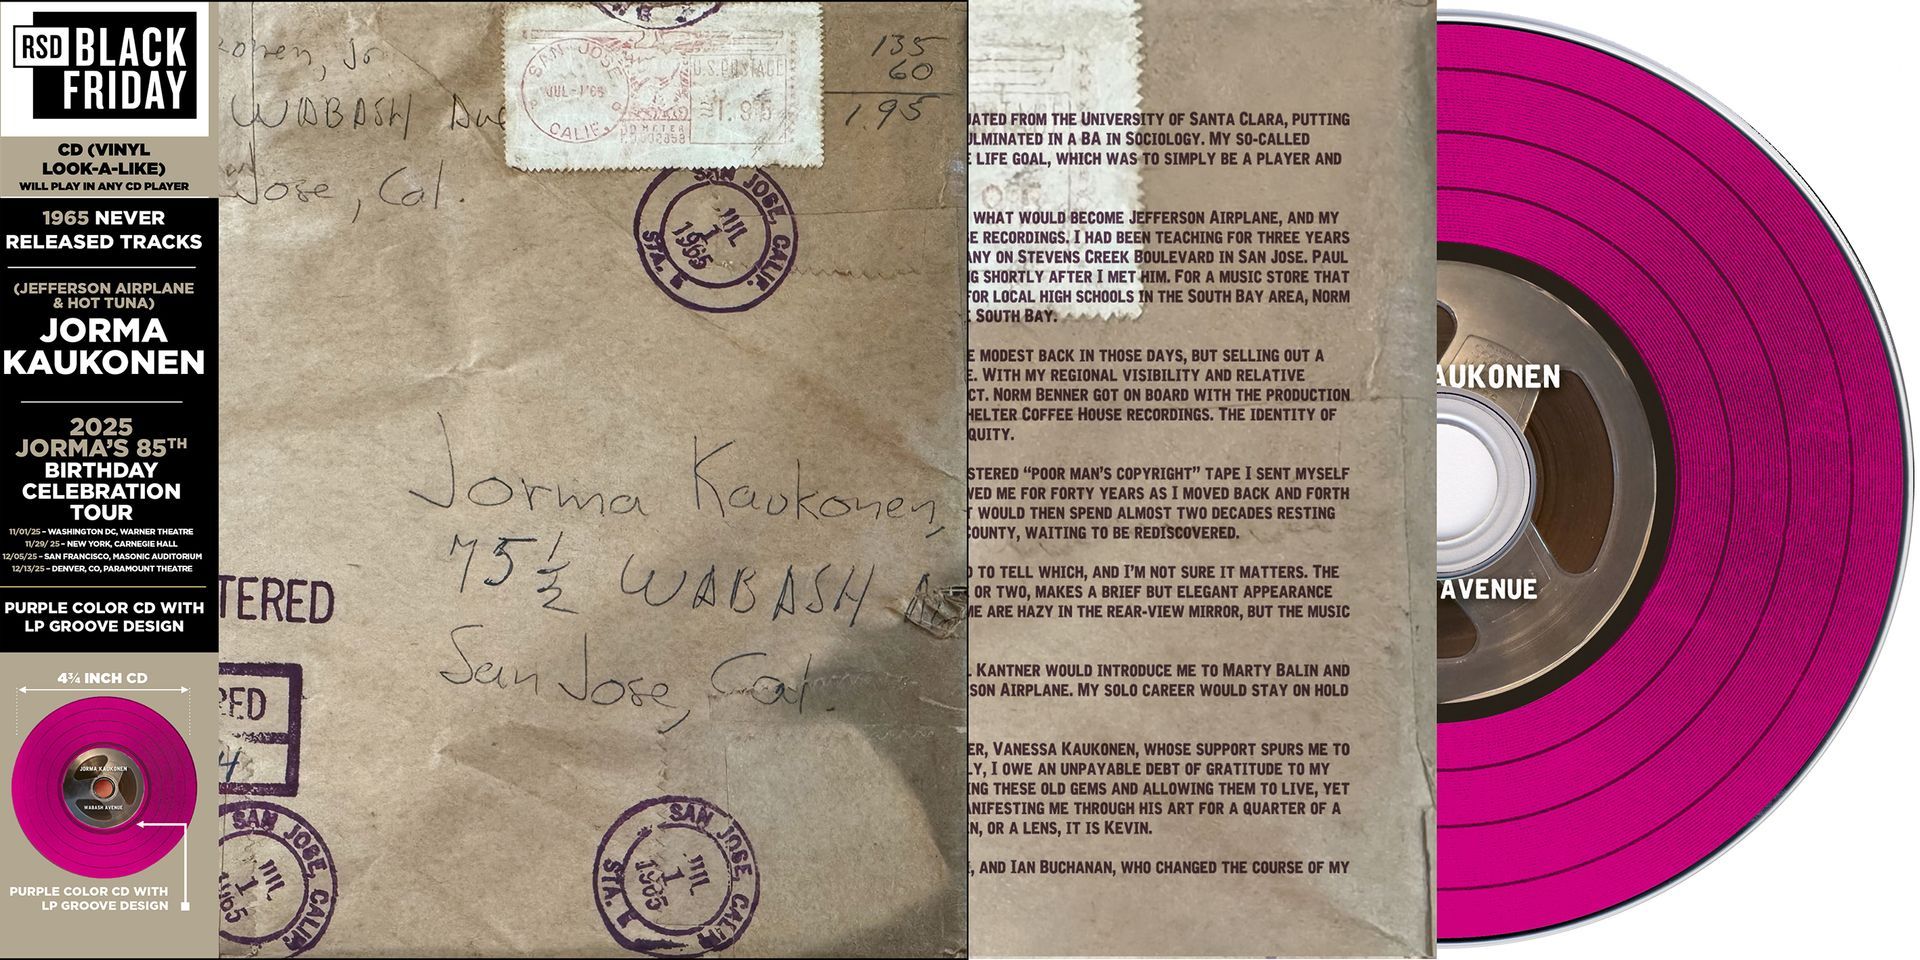 RSD BLACK
FRIDAY
CD (VINYL
LOOK-A-LIKE)
WILL PLAY IN ANY CD PLAYER
1965 NEVER
RELEASED TRACKS
(JEFFERSON AIRPLANE
& HOT TUNA)
JORMA
KAUKONEN
2025
JORMA'S 85TH
BIRTHDAY
CELEBRATION
TOUR
11/01/25 – WASHINGTON DC, WARNER THEATRE
11/29/ 25 – NEW YORK, CARNEGIE HALL
12/05/25 – SAN FRANCISCO, MASONIC AUDITORIUM
12/13/25 – DENVER, CO, PARAMOUNT THEATRE
PURPLE COLOR CD WITH
LP GROOVE DESIGN
4¾ INCH CD
JORMA KAUKONEN
WABASH AVENUE
PURPLE COLOR CD WITH
LP GROOVE DESIGN
onen, Jr
WABASH Ave
Jose, Cal.
SAN JOSE
CALIF.
U.S. POSTAGE
1.95
135
60
1.95
SAN JOSE, CALIF.
JUL
1
1965
STA.
Jorma Kaukonen,
75 1/2 WABASH
San Jose, Cal.
TERED
RED
4
SAN JOSE, CALIF.
JUL
1
1965
SAN JOSE, CALIF.
JUL
1
1965
STA.
UATED FROM THE UNIVERSITY OF SANTA CLARA, PUTTING
ULMINATED IN A BA IN SOCIOLOGY. MY SO-CALLED
E LIFE GOAL, WHICH WAS TO SIMPLY BE A PLAYER AND
WHAT WOULD BECOME JEFFERSON AIRPLANE, AND MY
SE RECORDINGS. I HAD BEEN TEACHING FOR THREE YEARS
ANY ON STEVENS CREEK BOULEVARD IN SAN JOSE. PAUL
G SHORTLY AFTER I MET HIM. FOR A MUSIC STORE THAT
FOR LOCAL HIGH SCHOOLS IN THE SOUTH BAY AREA, NORM
E SOUTH BAY.
E MODEST BACK IN THOSE DAYS, BUT SELLING OUT A
E. WITH MY REGIONAL VISIBILITY AND RELATIVE
CT. NORM BENNER GOT ON BOARD WITH THE PRODUCTION
HELTER COFFEE HOUSE RECORDINGS. THE IDENTITY OF
QUITY.
STERED "POOR MAN'S COPYRIGHT" TAPE I SENT MYSELF
WED ME FOR FORTY YEARS AS I MOVED BACK AND FORTH
T WOULD THEN SPEND ALMOST TWO DECADES RESTING
COUNTY, WAITING TO BE REDISCOVERED.
D TO TELL WHICH, AND I'M NOT SURE IT MATTERS. THE
OR TWO, MAKES A BRIEF BUT ELEGANT APPEARANCE
ME ARE HAZY IN THE REAR-VIEW MIRROR, BUT THE MUSIC
L KANTNER WOULD INTRODUCE ME TO MARTY BALIN AND
SON AIRPLANE. MY SOLO CAREER WOULD STAY ON HOLD
ER, VANESSA KAUKONEN, WHOSE SUPPORT SPURS ME TO
LY, I OWE AN UNPAYABLE DEBT OF GRATITUDE TO MY
ING THESE OLD GEMS AND ALLOWING THEM TO LIVE, YET
ANIFESTING ME THROUGH HIS ART FOR A QUARTER OF A
N, OR A LENS, IT IS KEVIN.
E, AND IAN BUCHANAN, WHO CHANGED THE COURSE OF MY
AUKONEN
AVENUE